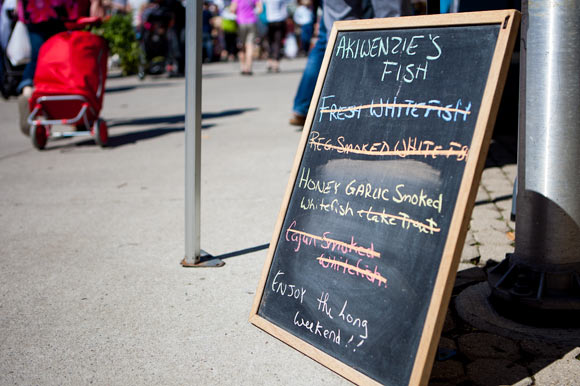 AKIWENZIE'S
FISH
FRESH WHITEFISH
REG. SMOKED WHITEFISH
HONEY GARLIC Smoked
Whitefish + Lake Trout
Cajun Smoked
Whitefish
ENJOY the Long
Weekend!!